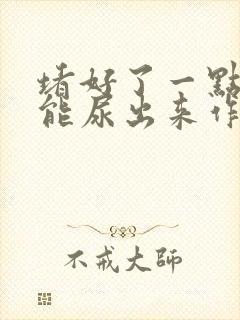 堵好了一點
能尿出来作
不戒大師